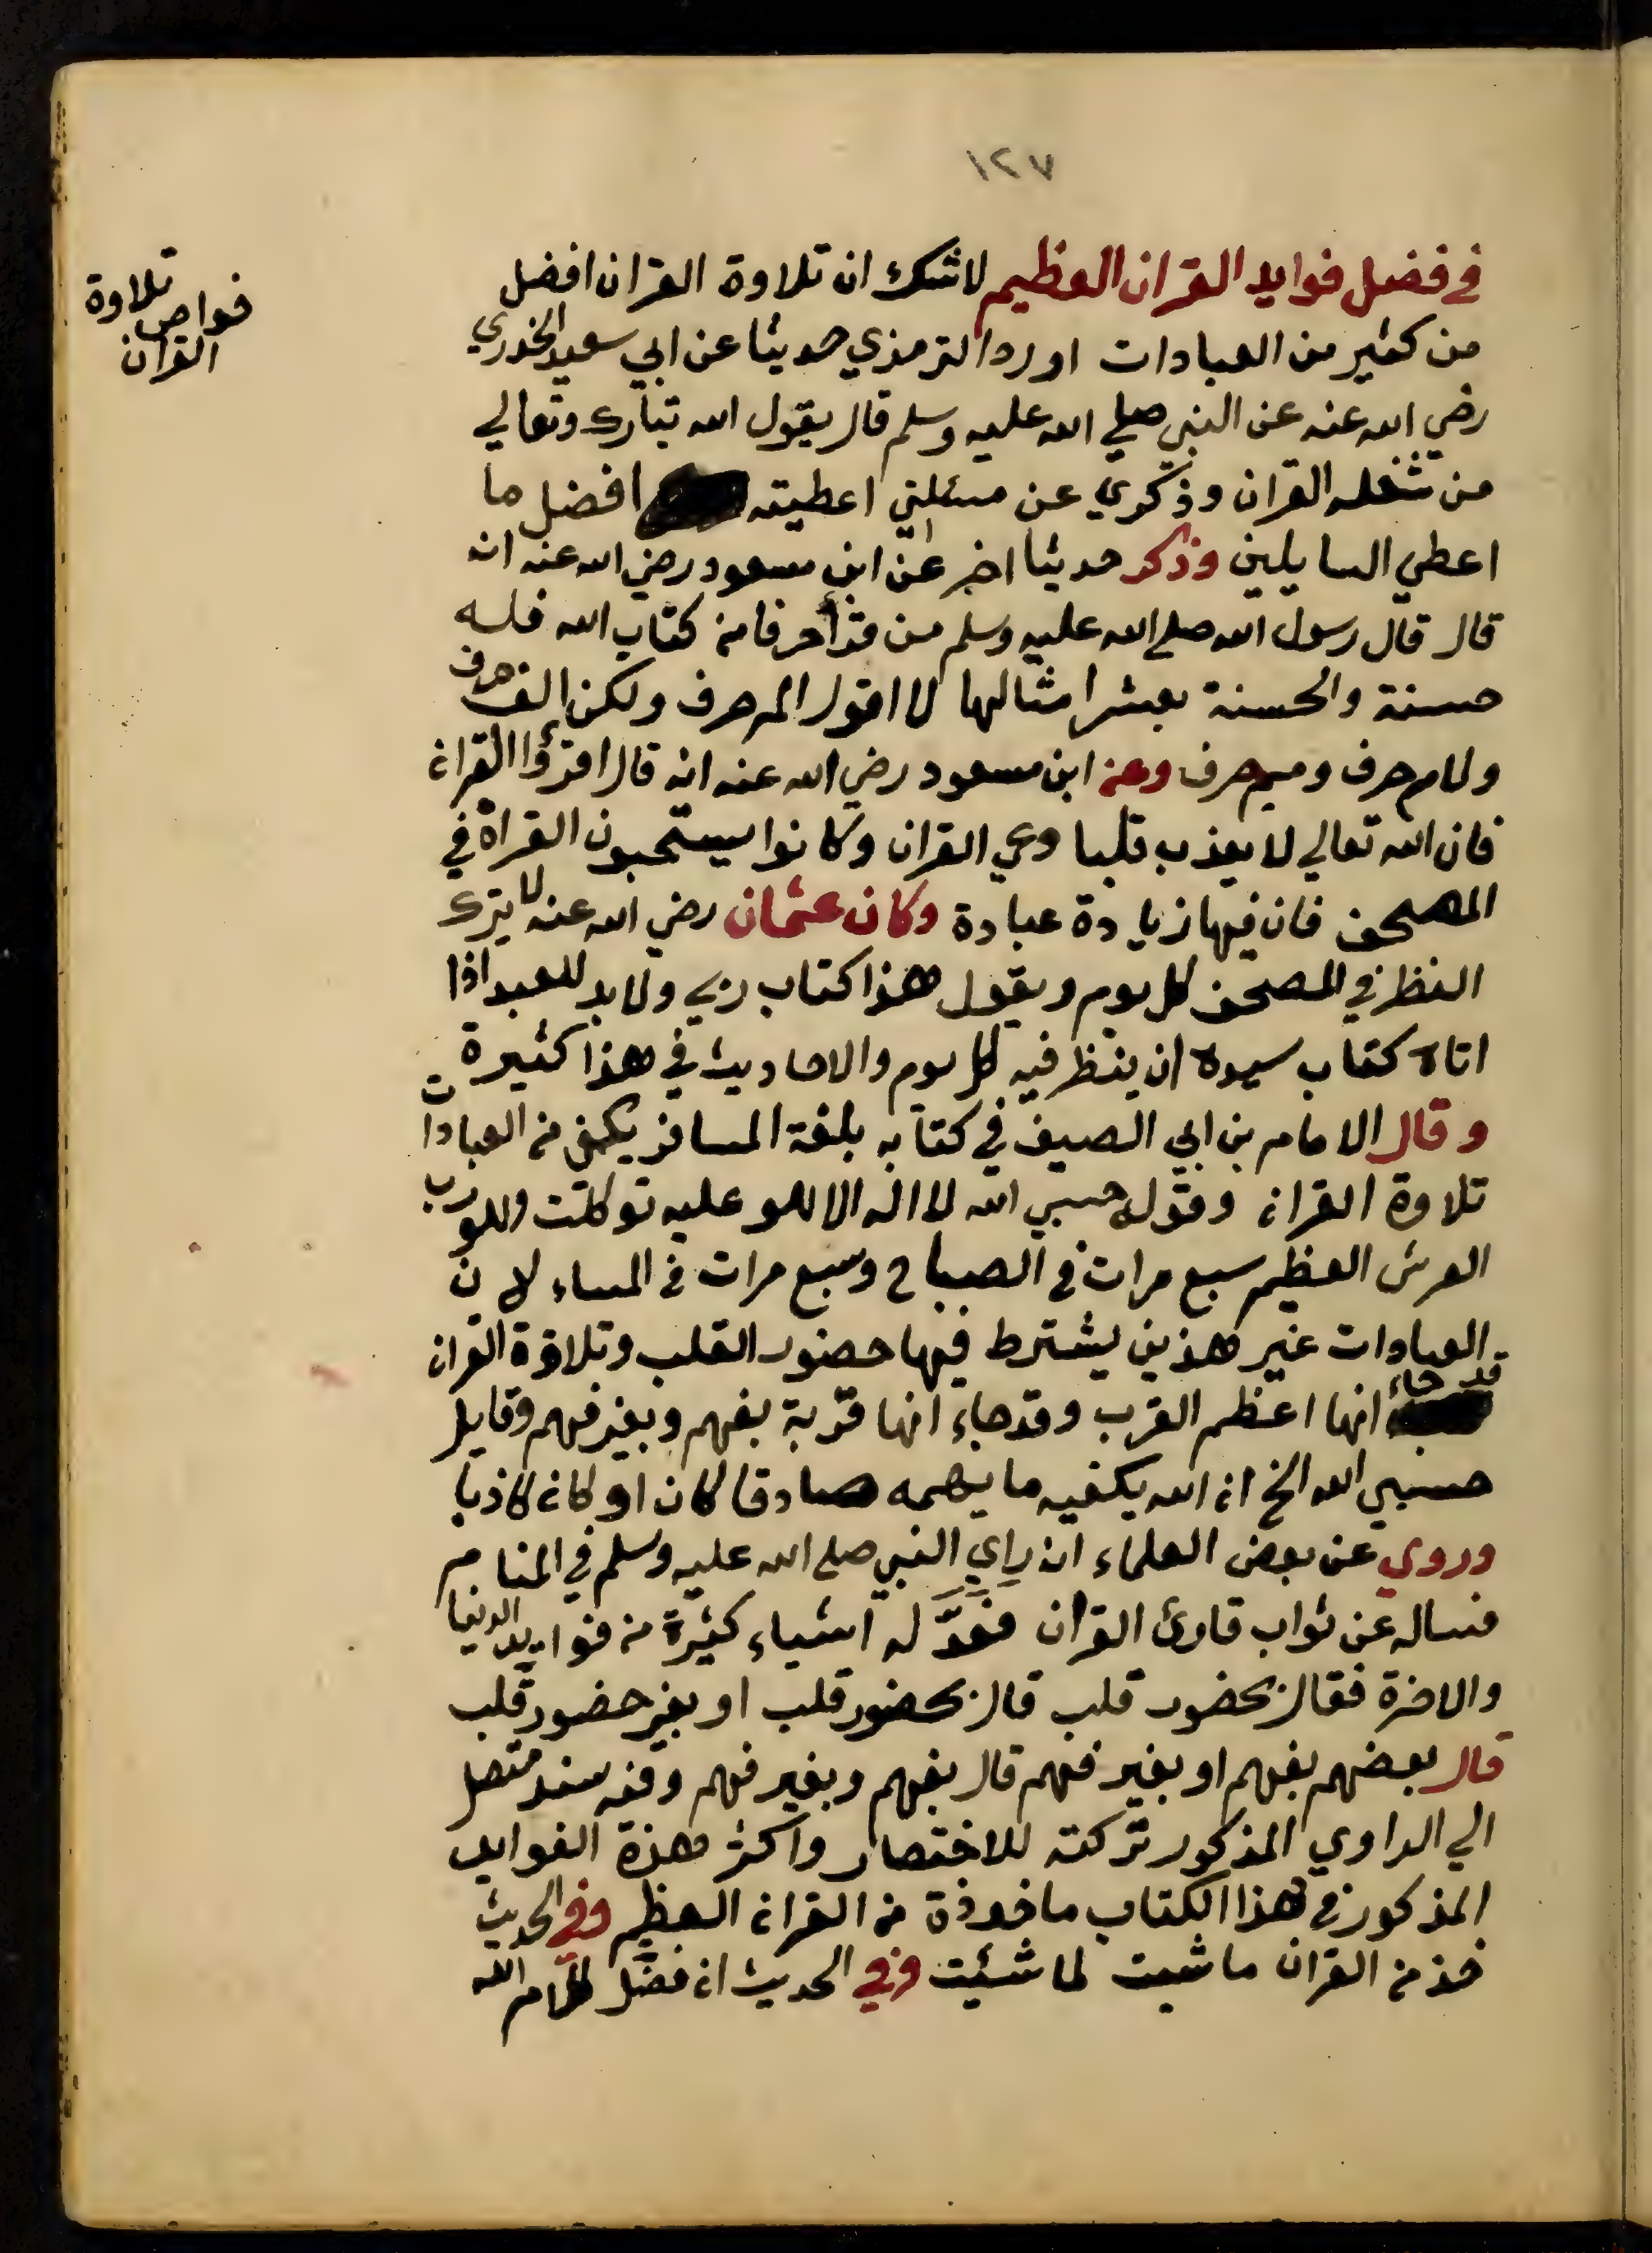 ١٢٧
في فضل فوايد القران العظيم لاشك ان تلاوة القران افضل
من كثير من العبادات اورد الترمذي حديثا عن ابي سعيد الخدري
رضي الله عنه عن النبي صلي الله عليه وسلم قال يقول الله تبارك وتعالي
من شغله القران وذكري عن مسئلتي اعطيته افضل ما
اعطي السايلين وذكر حديثا اخر عن ابن مسعود رضي الله عنه انه
قال قال رسول الله صلي الله عليه وسلم من قرأ حرفا من كتاب الله فله
حسنة والحسنة بعشر امثالها لا اقول الم حرف ولكن الف حرف
ولام حرف وميم حرف وعن ابن مسعود رضي الله عنه انه قال اقرؤا القران
فان الله تعالي لا يعذب قلبا وعي القران وكانوا يستحبون القراة في
المصحف فان فيها زيادة عبادة وكان عثمان رضي الله عنه لا يترك
النظر في المصحف كل يوم ويقول هذا كتاب ربي ولا بد للعبد اذا
اتاه كتاب سيده ان ينظر فيه كل يوم والاحاديث في هذا كثيرة
وقال الامام بن ابي الصيف في كتابه بلغة المسافر يكفي من العبادات
تلاوة القران وقول حسبي الله لا اله الا هو عليه توكلت وهو رب
العرش العظيم سبع مرات في الصباح وسبع مرات في المساء لان
العبادات غير هذين يشترط فيها حضور القلب وتلاوة القران
قد جاء انها اعظم القرب وقد جاء انها قربة بفهم وبغير فهم وقايل
حسبي الله الخ ان الله يكفيه ما يهمه صادقا كان او كان كاذبا
وروي عن بعض العلماء انه راي النبي صلي الله عليه وسلم في المنام
فساله عن ثواب قارئ القران فعدَّ له اشياء كثيرة من فوايد الدنيا
والاخرة فقال بحضور قلب قال بحضور قلب او بغير حضور قلب
قال بعضهم بفهم او بغير فهم قال بفهم وبغير فهم وفيه سند متصل
الي الراوي المذكور تركته للاختصار واكثر هذة الفوايد
المذكور في هذا الكتاب ماخوذة من القران العظيم وفي الحديث
خذ من القران ما شيت لما شئيت وفي الحديث ان فضل كلام الله
خواص تلاوة
القران